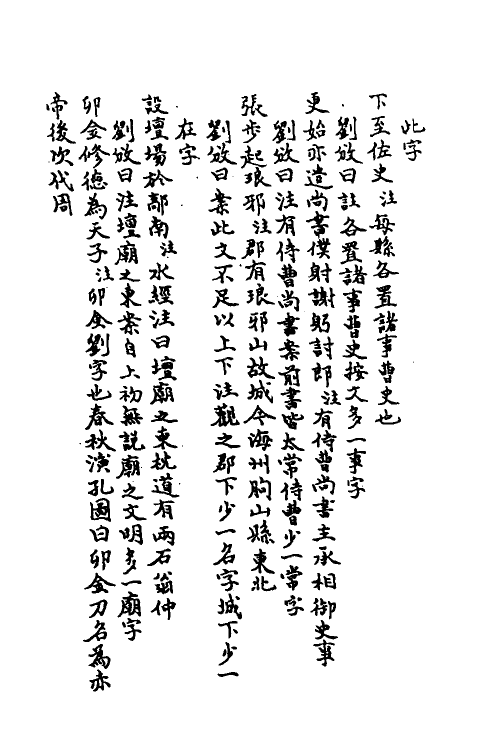 此字
下至佐史注每縣各置諸事曹史也
劉攽曰註各置諸事曹史按文多一事字
更始亦遣尚書僕射謝躬討郎注有侍曹尚書主承相御史事
劉攽曰注有侍曹尚書案前書皆太常侍曹少一常字
張步起琅邪注郡有琅邪山故城今海州朐山縣東北
劉攽曰案此文不足以上下注觀之郡下少一名字城下少一
在字
設壇場於鄗南注水經注曰壇廟之東枕道有兩石翁仲
劉攽曰注壇廟之東案自上初無說廟之文明多一廟字
卯金修德為天子注卯金劉字也春秋演孔圖曰卯金刀名為赤
帝後次代周